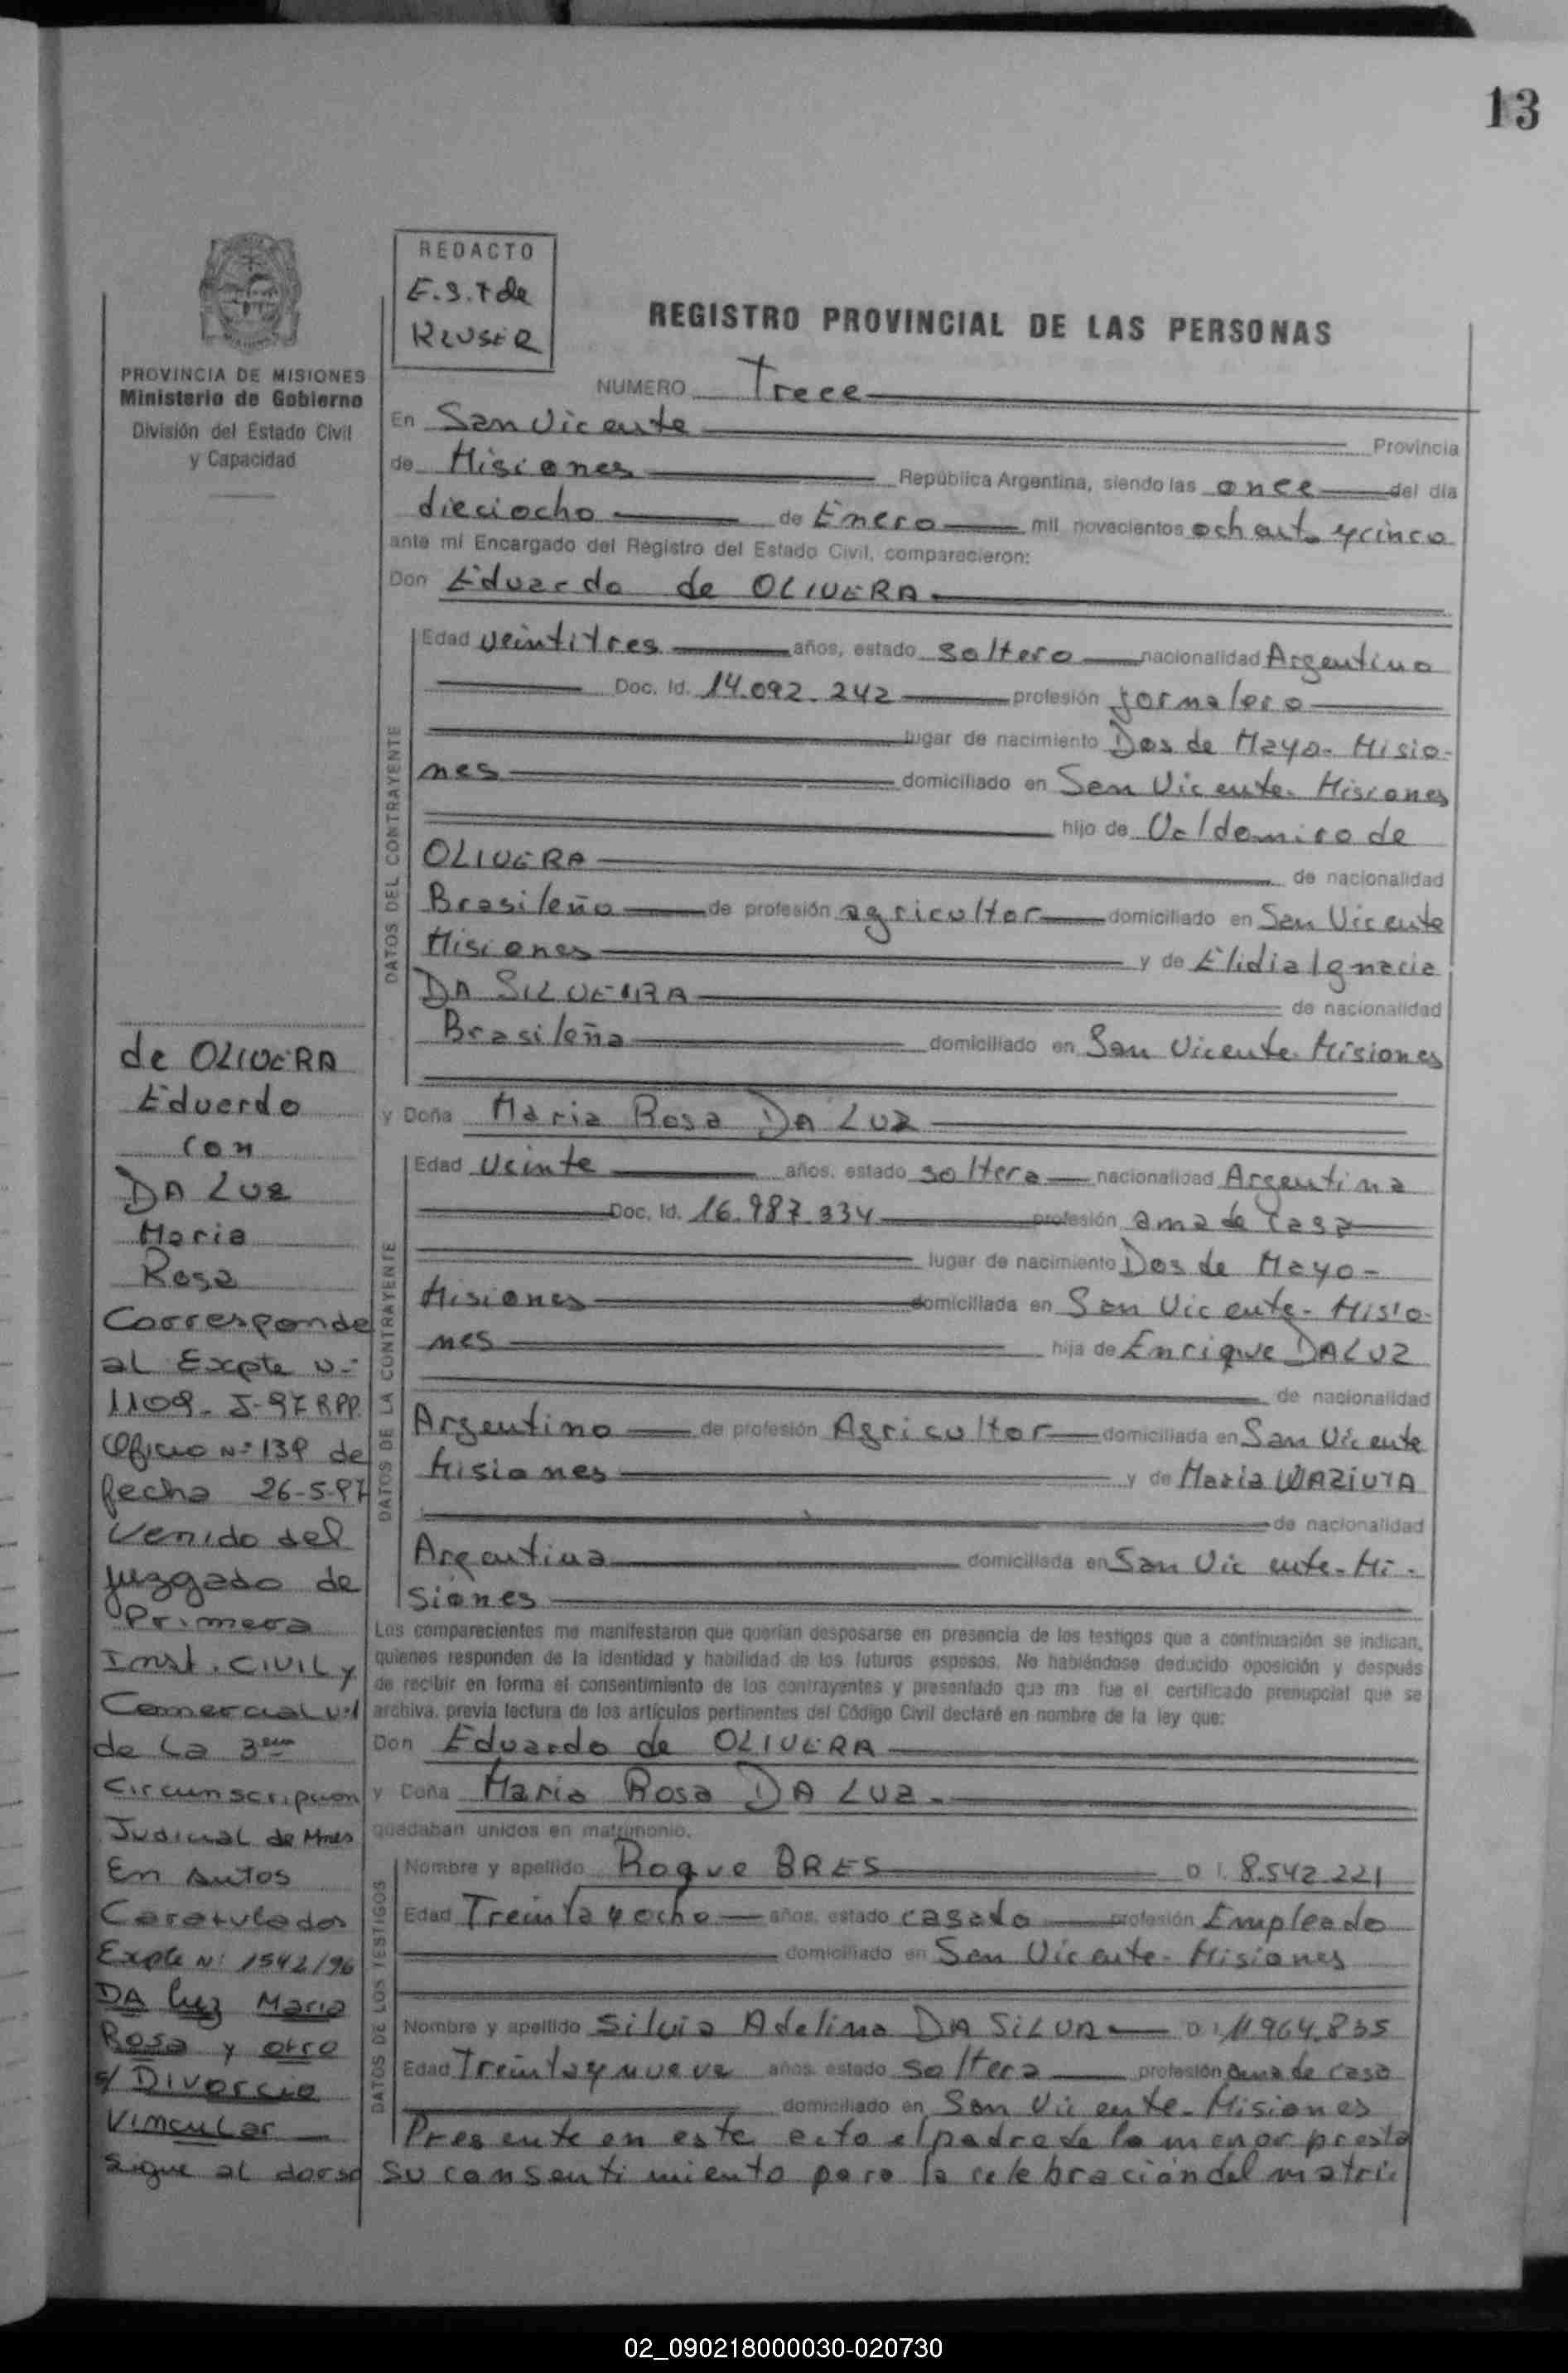 13
REDACTO
E.S.T de
REUSER
REGISTRO PROVINCIAL DE LAS PERSONAS
PROVINCIA DE MISIONES
Ministerio de Gobierno
División del Estado Civil
y Capacidad
NUMERO Trece
En San Vicente Provincia
de Misiones República Argentina, siendo las once del día
dieciocho de Enero mil novecientos ochenta y cinco
ante mí Encargado del Registro del Estado Civil, comparecieron:
Don Eduardo de OLIVERA
DATOS DEL CONTRAYENTE
Edad veintitres años, estado soltero nacionalidad Argentino
Doc. Id. 14.092.242 profesión jornalero
lugar de nacimiento Dos de Mayo- Misio-
nes domiciliado en San Vicente- Misiones
hijo de Valdomiro de
OLIVERA de nacionalidad
Brasileño de profesión agricultor domiciliado en San Vicente
Misiones y de Elidia Ignacia
DA SILVEIRA de nacionalidad
Brasileña domiciliado en San Vicente- Misiones
y Doña Maria Rosa DA LUZ
DATOS DE LA CONTRAYENTE
Edad Veinte años, estado soltera nacionalidad Argentina
Doc. Id. 16.987.334 profesión ama de casa
lugar de nacimiento Dos de Mayo-
Misiones domiciliada en San Vicente- Misio-
nes hija de Enrique DA LUZ
de nacionalidad
Argentino de profesión Agricultor domiciliada en San Vicente
Misiones y de Maria
de nacionalidad
Argentina domiciliada en San Vicente- Mi-
siones
Los comparecientes me manifestaron que querían desposarse en presencia de los testigos que a continuación se indican,
quienes responden de la identidad y habilidad de los futuros esposos. No habiéndose deducido oposición y después
de recibir en forma el consentimiento de los contrayentes y presentado que me fue el certificado prenupcial que se
archiva, previa lectura de los artículos pertinentes del Código Civil declaré en nombre de la ley que:
Don Eduardo de OLIVERA
y Doña Maria Rosa DA LUZ.
quedaban unidos en matrimonio.
DATOS DE LOS TESTIGOS
Nombre y apellido Roque BRES D I. 8.542.221
Edad Treinta y ocho años, estado casado profesión Empleado
domiciliado en San Vicente- Misiones
Nombre y apellido Silvia Adelina DA SILVA D I. 11.964.835
Edad Treinta y nueve años, estado soltera profesión ama de casa
domiciliado en San Vicente- Misiones
Presente en este acto el padre de la menor presta
su consentimiento para la celebración del matri-
de OLIVERA
Eduardo
con
DA LUZ
Maria
Rosa
Corresponde
al Expte N:
1109- J-97 RPP.
Oficio Nº 139 de
fecha 26-5-97
Venido del
Juzgado de
Primera
Inst. CIVIL y
Comercial Nº1
de la 3era
Circunscripcion
Judicial de Mnes
En Autos
Caratulados
Expte Nº 1542/96
DA Luz Maria
Rosa y otro
s/ Divorcio
Vincular
Sigue al dorso
02_090218000030-020730